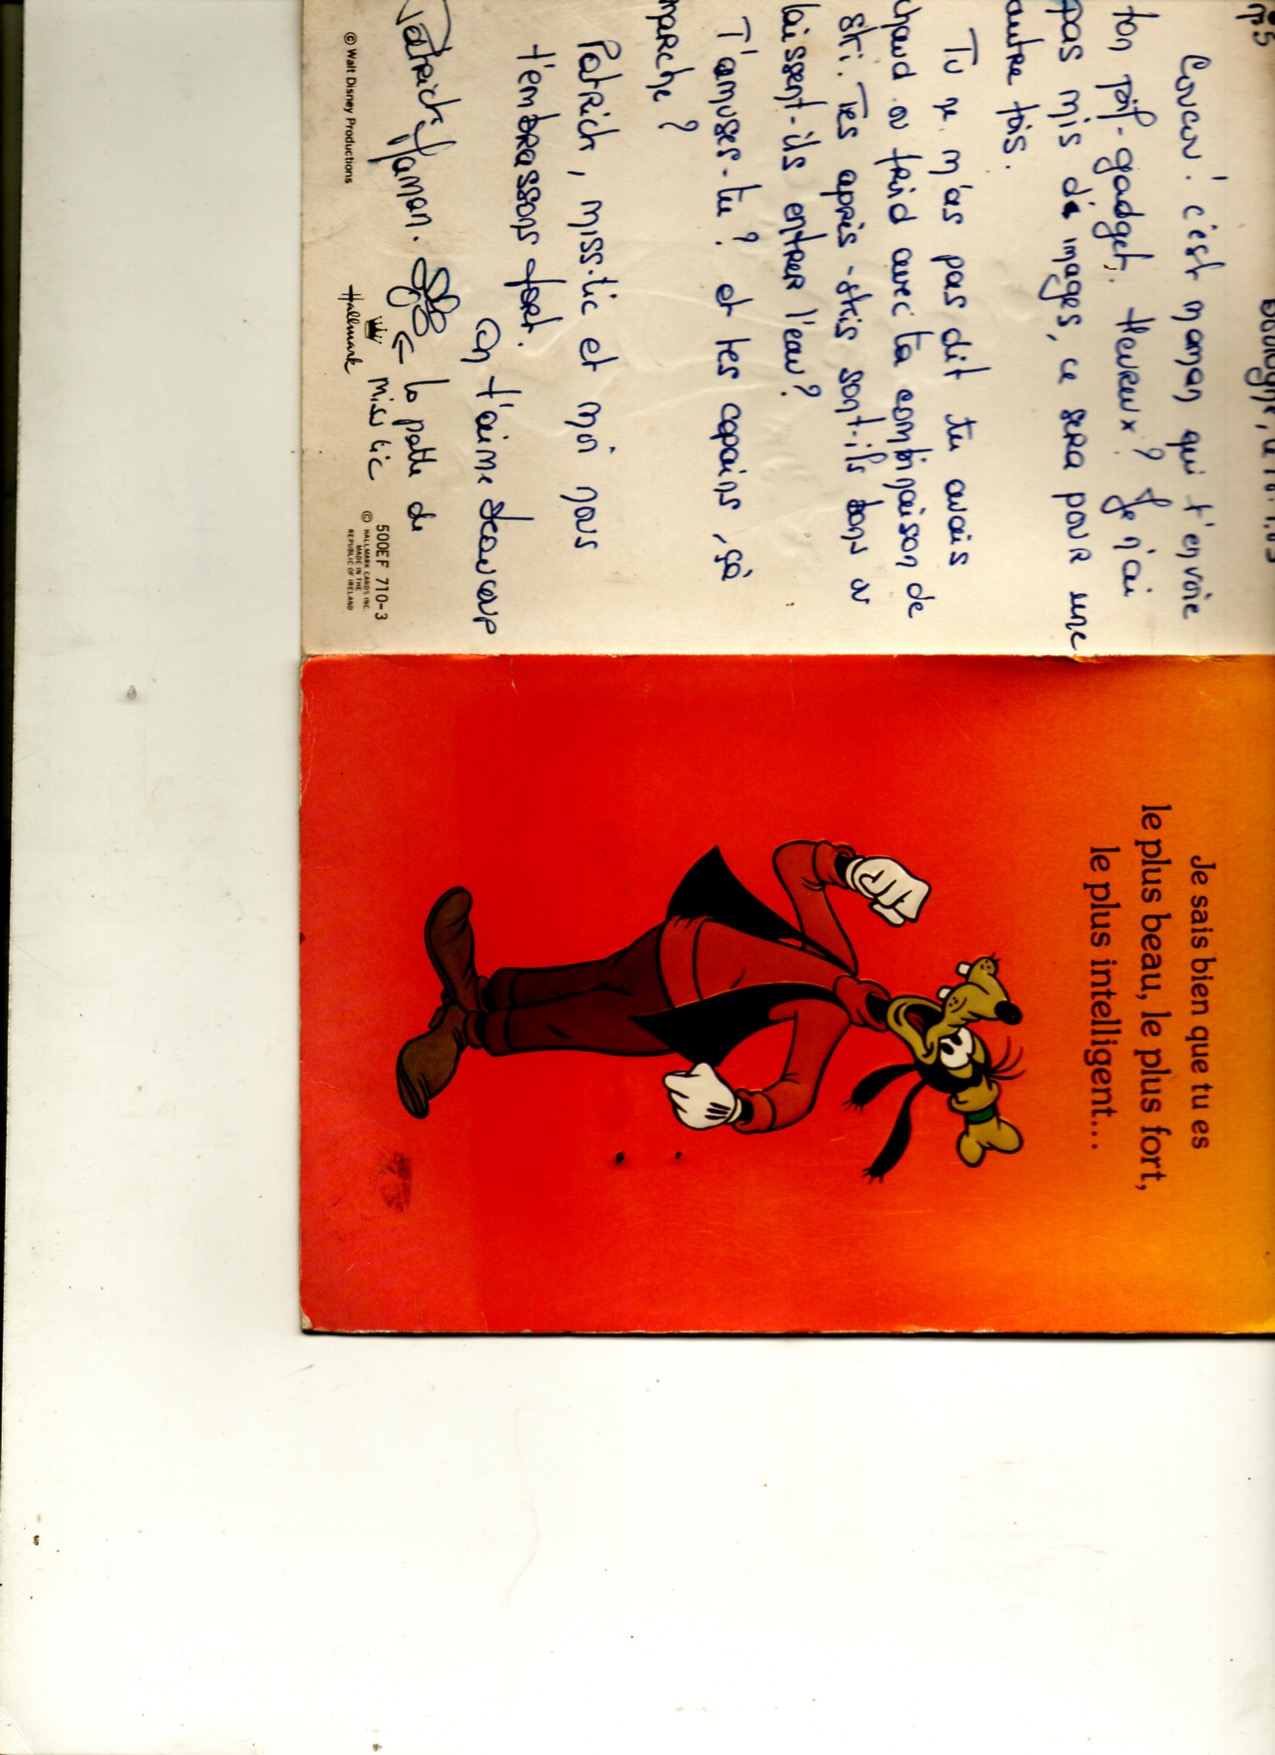 n°5
Coucou! c'est maman qui t'envoie
ton pif-gadget. Heureux? Je n'ai
pas mis d'images, ce sera pour une
autre fois.
Tu ne m'as pas dit tu avais
chaud ou froid avec ta combinaison de
ski. Tes après-skis sont-ils bons ou
laissent-ils entrer l'eau?
T'amuses-tu? et tes copains, çà
marche?
Patrick, miss-tic et moi nous
t'embrassons fort.
On t'aime beaucoup
Patrick Maman. ← la patte de
miss tic
© Walt Disney Productions
Hallmark
500EF 710-3
© HALLMARK CARDS INC.
MADE IN THE
REPUBLIC OF IRELAND
Je sais bien que tu es
le plus beau, le plus fort,
le plus intelligent...